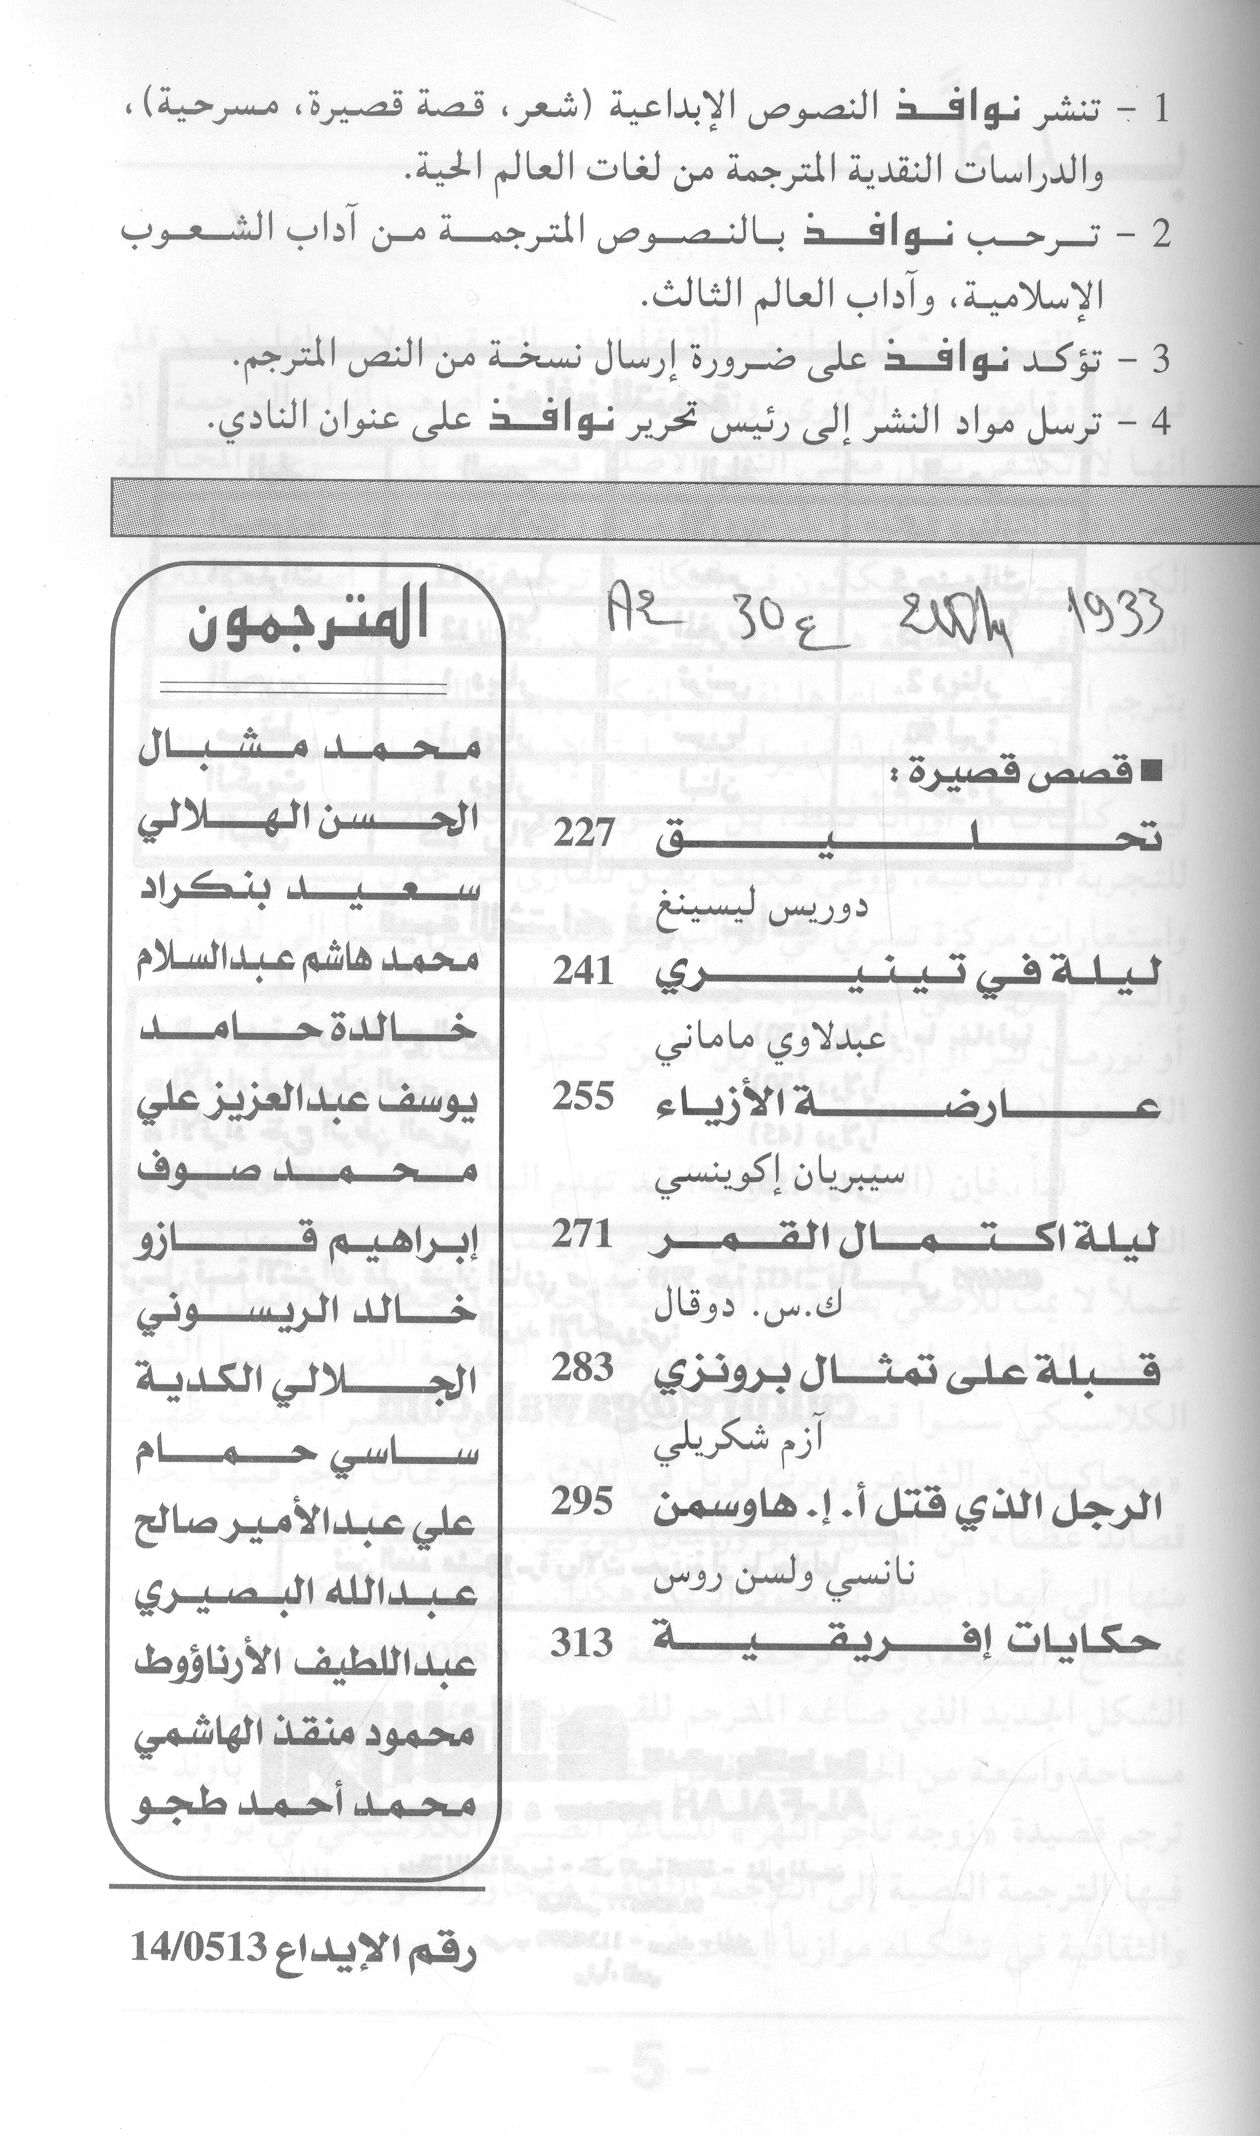 1 - تنشر نوافذ النصوص الإبداعية (شعر، قصة قصيرة، مسرحية)،
والدراسات النقدية المترجمة من لغات العالم الحية.
2 - ترحب نوافذ بالنصوص المترجمة من آداب الشعوب
الإسلامية، وآداب العالم الثالث.
3 - تؤكد نوافذ على ضرورة إرسال نسخة من النص المترجم.
4 - ترسل مواد النشر إلى رئيس تحرير نوافذ على عنوان النادي.
A2 30 ع 1933
■ قصص قصيرة :
تحليق 227
دوريس ليسينغ
ليلة في تينيري 241
عبدلاوي ماماني
عارضة الأزياء 255
سيبريان إكوينسي
ليلة اكتمال القمر 271
ك.س. دوقال
قبلة على تمثال برونزي 283
آزم شكريلي
الرجل الذي قتل أ. إ. هاوسمن 295
نانسي ولسن روس
حكايات إفريقية 313
المترجمون
محمد مشبال
الحسن الهلالي
سعيد بنكراد
محمد هاشم عبدالسلام
خالدة حامد
يوسف عبدالعزيز علي
محمد صوف
إبراهيم قازو
خالد الريسوني
الجلالي الكدية
ساسي حمام
علي عبدالأمير صالح
عبدالله البصيري
عبداللطيف الأرناؤوط
محمود منقذ الهاشمي
محمد أحمد طجو
رقم الإيداع 14/0513